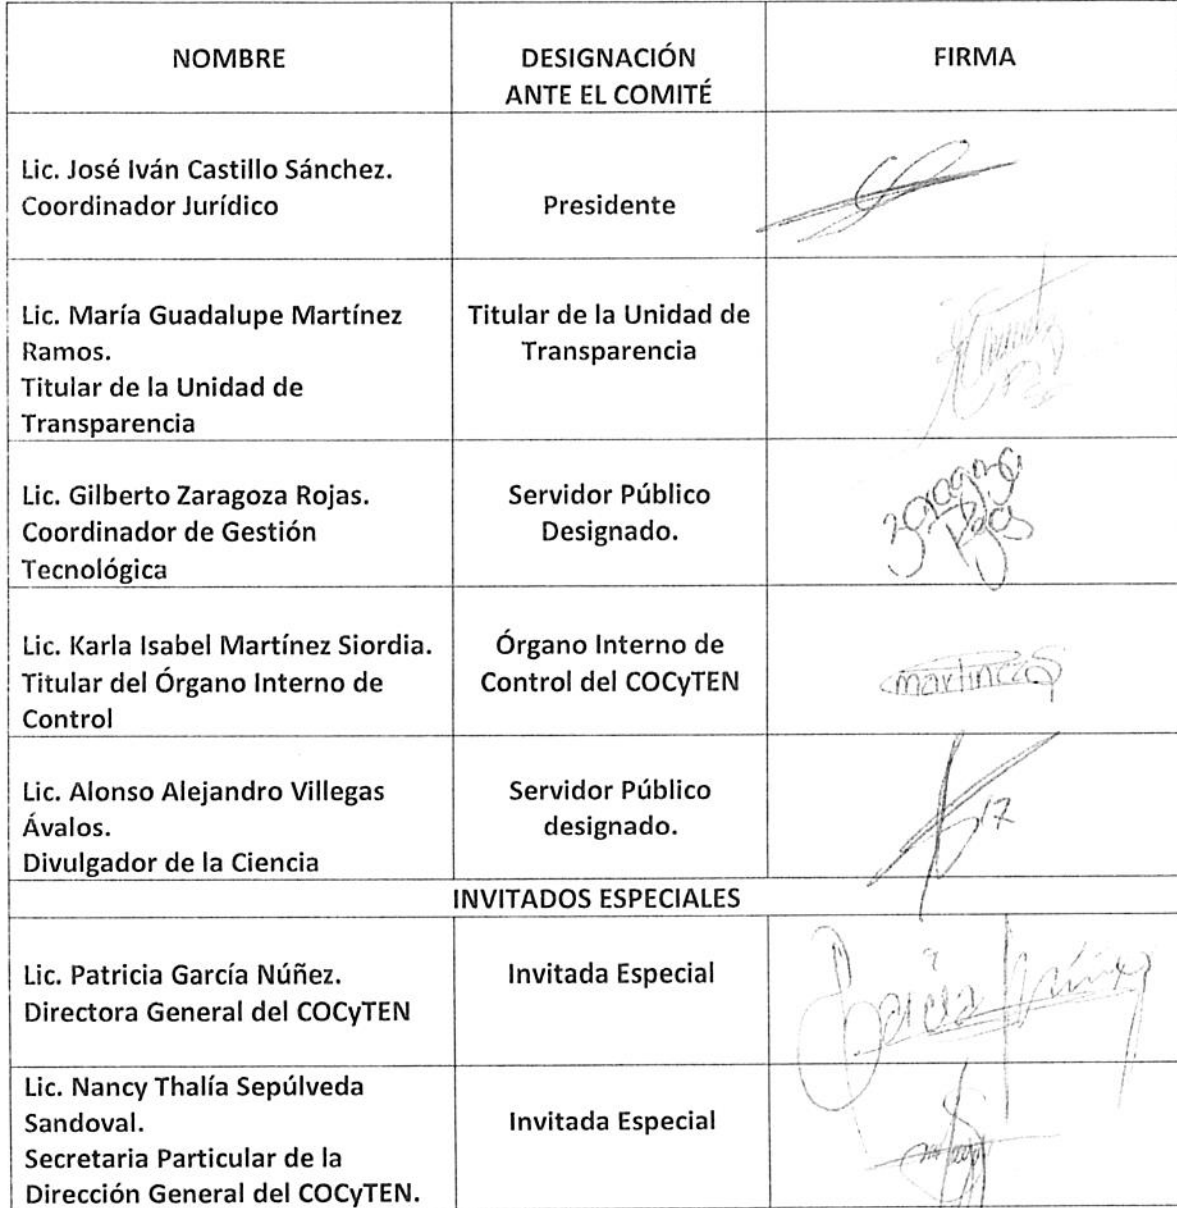 NOMBRE
DESIGNACIÓN
ANTE EL COMITÉ
FIRMA
Lic. José Iván Castillo Sánchez.
Coordinador Jurídico
Presidente
Lic. María Guadalupe Martínez
Ramos.
Titular de la Unidad de
Transparencia
Titular de la Unidad de
Transparencia
Lic. Gilberto Zaragoza Rojas.
Coordinador de Gestión
Tecnológica
Servidor Público
Designado.
Zaragoza
Rojas
Lic. Karla Isabel Martínez Siordia.
Titular del Órgano Interno de
Control
Órgano Interno de
Control del COCyTEN
Martinez S
Lic. Alonso Alejandro Villegas
Ávalos.
Divulgador de la Ciencia
Servidor Público
designado.
INVITADOS ESPECIALES
Lic. Patricia García Núñez.
Directora General del COCyTEN
Invitada Especial
García Núñez
Lic. Nancy Thalía Sepúlveda
Sandoval.
Secretaria Particular de la
Dirección General del COCyTEN.
Invitada Especial